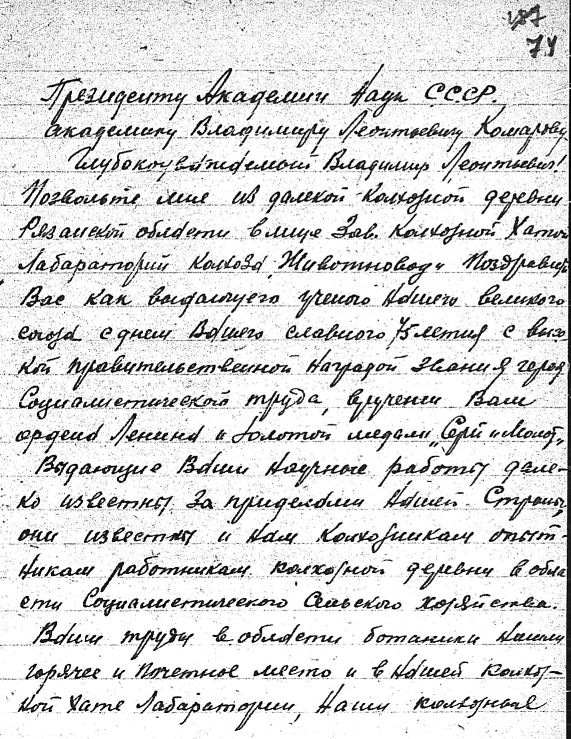 187
74
Президенту Академии Наук С.С.С.Р.
академику Владимиру Леонтьевичу Комарову.
Глубокоуважаемый Владимир Леонтьевич!
Позвольте мне из далекой колхозной деревни
Рязанской области в лице Зав. колхозной Хатой
Лабараторий колхоза „Животновод" Поздравить
Вас как выдающего ученого нашего великого
союза с днем Вашего славного 75 летия с высо-
кой правительственной наградой звания герой
Социалистического труда, вручении Вам
ордена Ленина и золотой медали „Серп и Молот„
Выдающие Ваши научные работы дале-
ко известны за приделами нашей Страны,
они известны и нам колхозникам опыт-
никам работникам колхозной деревни в обла
сти Социалистического Сельского хозяйства.
Ваши труды в области ботаники нашли
горячее и почетное место и в нашей колхоз-
ной Хате Лабаратории, Наши колхозные